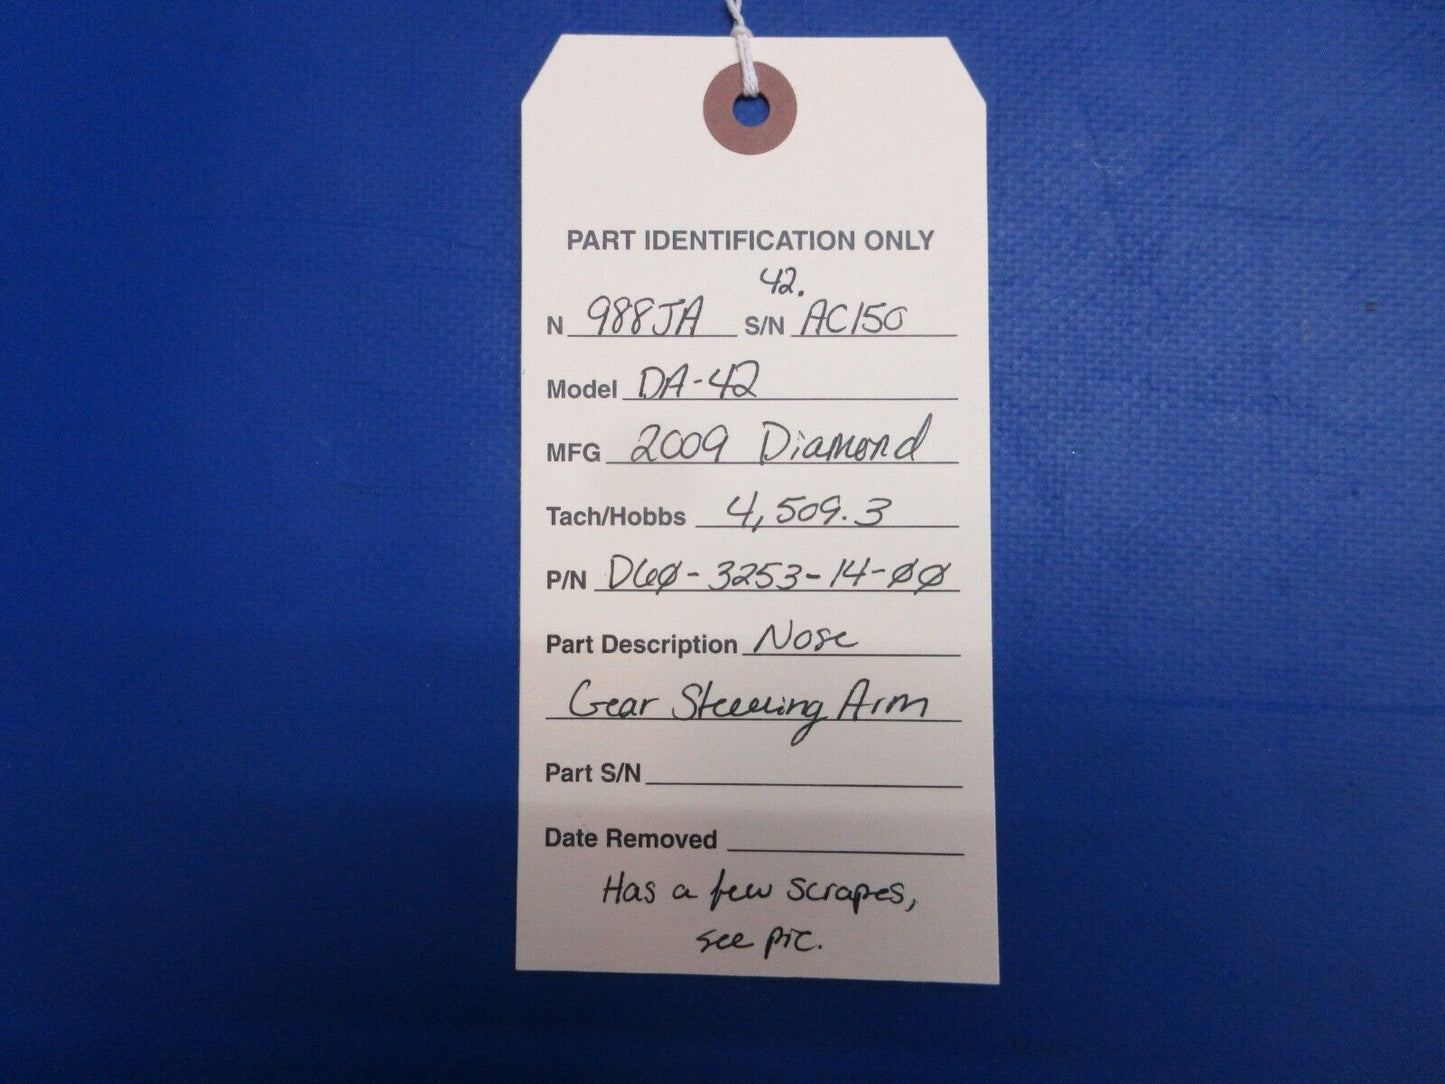 PART IDENTIFICATION ONLY
42.
N 988JA S/N AC150
Model DA-42
MFG 2009 Diamond
Tach/Hobbs 4,509.3
P/N D60-3253-14-00
Part Description Nose
Gear Steering Arm
Part S/N
Date Removed
Has a few scrapes,
see pic.